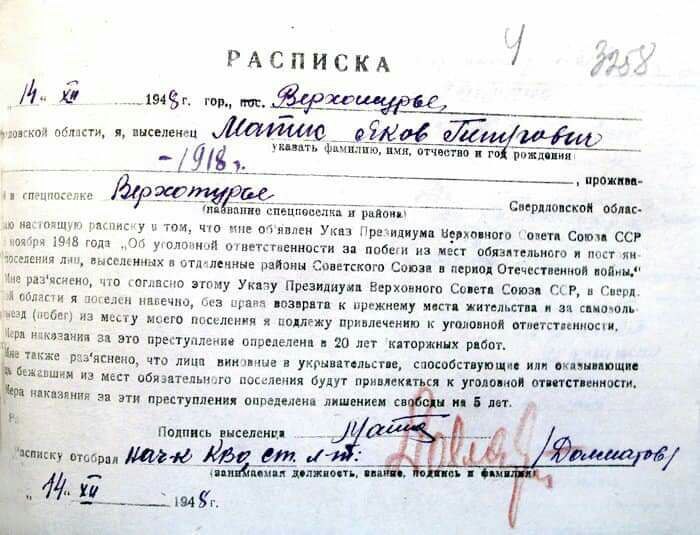 4 3258
РАСПИСКА
„14„ XII 1948г. гор., пос. Верхотурье,
рдловской области, я, выселенец Матис Яков Петрович
указать фамилию, имя, отчество и год рождения
-1918г. , прожива-
й в спецпоселке Верхотурье Свердловской облас-
(название спецпоселка и района)
аю настоящую расписку в том, что мне об'явлен Указ Президиума Верховного Совета Союза ССР
ноября 1948 года „Об уголовной ответственности за побеги из мест обязательного и постоян-
поселения лиц, выселенных в отдаленные районы Советского Союза в период Отечественной войны."
Мне раз'яснено, что согласно этому Указу Президиума Верховного Совета Союза ССР, в Сверд.
ой области я поселен навечно, без права возврата к прежнему места жительства и за самоволь
выезд (побег) из месту моего поселения я подлежу привлечению к уголовной ответственности.
Мера наказания за это преступление определена в 20 лет каторжных работ.
Мне также раз'яснено, что лица виновные в укрывательстве, способствующие или оказывающие
ь бежавшим из мест обязательного поселения будут привлекаться к уголовной ответственности.
Мера наказания за эти преступления определена лишением свободы на 5 лет.
Подпись выселенца
Расписку отобрал нач-к КВО ст. л-т: /Долматов/
(занимаемая должность, звание, подпись и фамилия)
„14" XII 1948г.